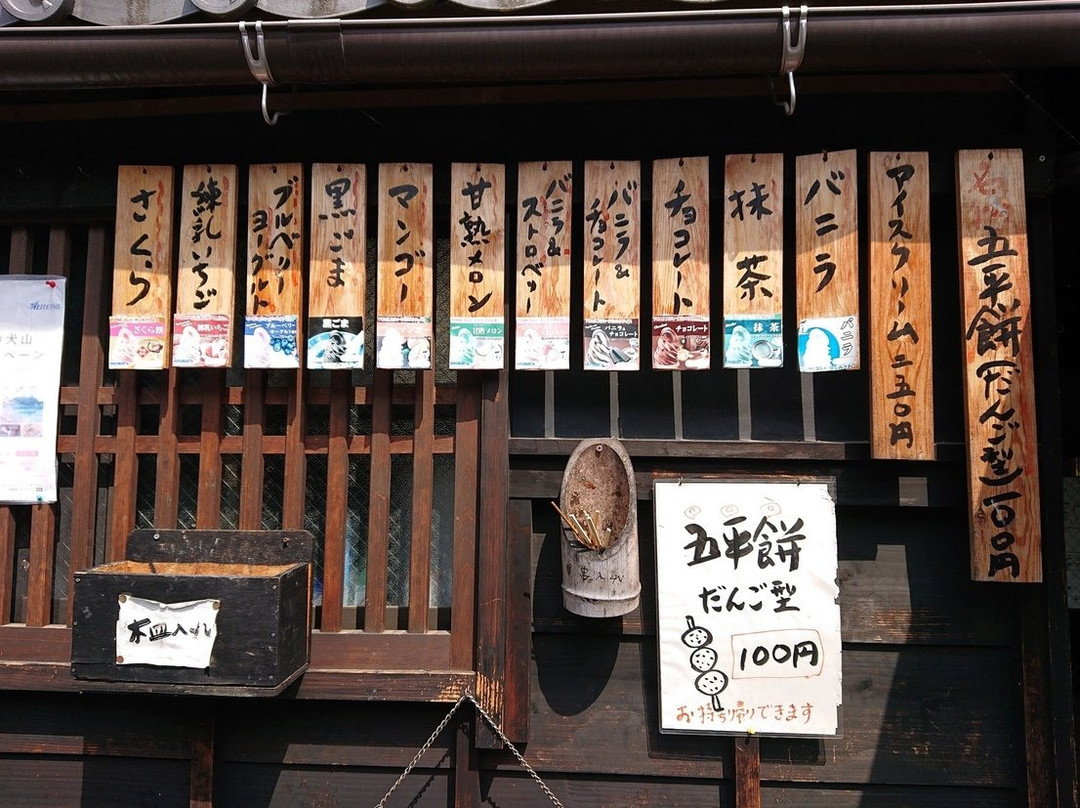 五平餅(だんご型)一〇〇円
アイスクリーム二五〇円
バニラ
バニラ
抹茶
抹茶
チョコレート
チョコレート
バニラ&
チョコレート
バニラ&
チョコレート
バニラ&
ストロベリー
甘熟メロン
マンゴー
黒ごま
黒ごま
ブルベリー
ヨーグルト
ブルーベリー
練乳いちご
練乳いちご
さくら
さくら餅
犬山
ペーン
木皿入れ
五平餅
だんご型
100円
お持ち帰りできます